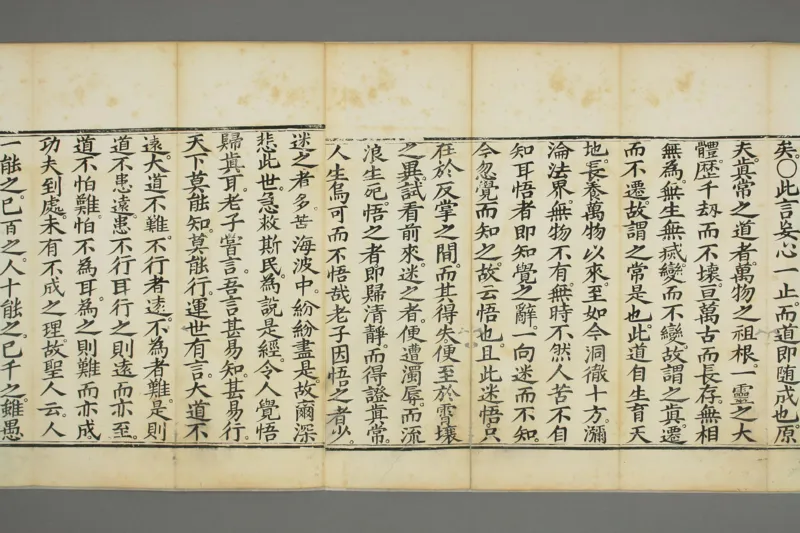 矣。○此言妄心一止。而道即随成也。原
夫眞常之道者。萬物之祖根。一靈之大
體。歷千刼而不壞。亘萬古而長存。無相
無為。無生無滅。變而不變。故謂之眞。遷
而不遷。故謂之常是也。此道自生育天
地。長養萬物以來。至如今洞徹十方。瀰
淪法界。無物不有。無時不然。人苦不自
知耳。悟者即知覺之辭。一向迷而不知。
今忽覺而知之。故云悟也。且此迷悟。只
在於反掌之間。而其得失。便至於霄壤
之異。試看前來迷之者。便遭濁辱。而流
浪生死。悟之者。即歸清靜。而得證眞常。
人生烏可而不悟哉。老子因悟之者少。
迷之者多。苦海波中。紛紛盡是。故爾深
悲此世。急救斯民。為說是經。令人覺悟
歸眞耳。老子嘗言。吾言甚易知。甚易行。
天下莫能知。莫能行。運世有言。大道不
遠。大道不難。不行者遠。不為者難。是則
道不患遠。患不行耳。行之則遠而亦至。
道不怕難。怕不為耳。為之則難而亦成
功夫到處。未有不成之理。故聖人云。人
一能之。已百之。人十能之。已千之。雖愚